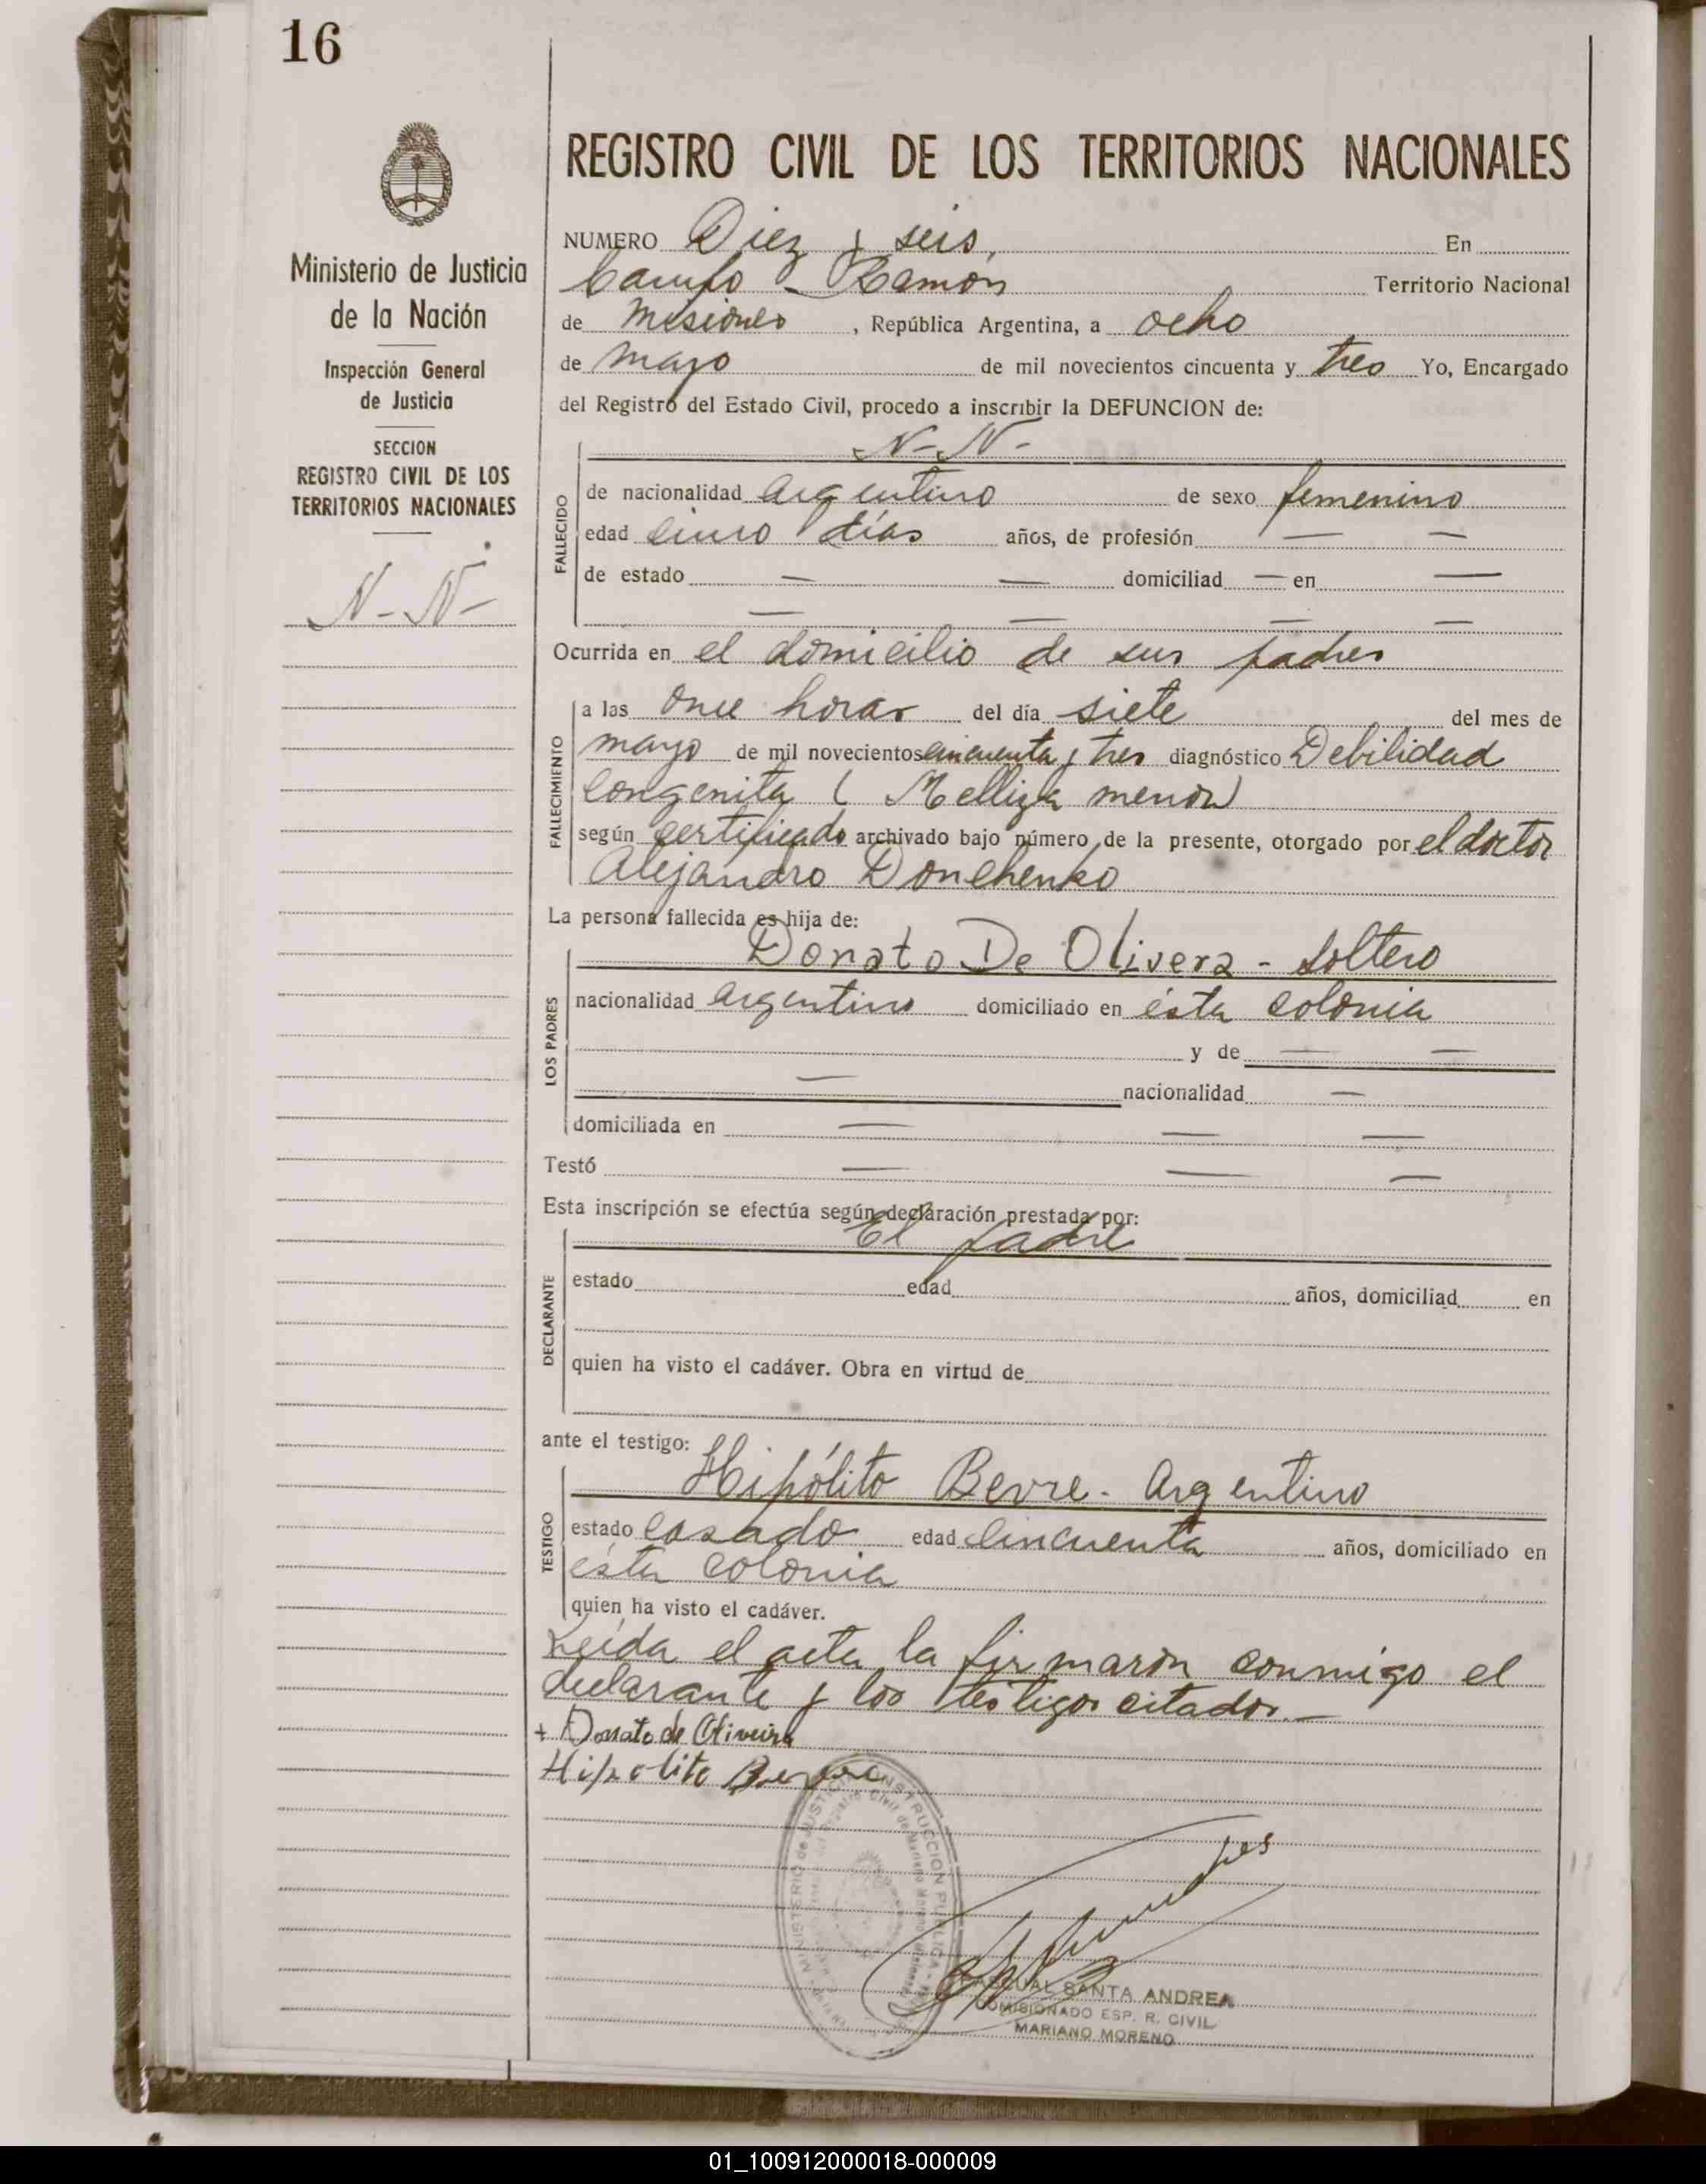 16
Ministerio de Justicia
de la Nación
Inspección General
de Justicia
SECCION
REGISTRO CIVIL DE LOS
TERRITORIOS NACIONALES
N-N-
REGISTRO CIVIL DE LOS TERRITORIOS NACIONALES
NUMERO Diez y seis, En
Campo Ramón Territorio Nacional
de Misiones, República Argentina, a ocho
de mayo de mil novecientos cincuenta y tres Yo, Encargado
del Registro del Estado Civil, procedo a inscribir la DEFUNCION de:
N-N-
FALLECIDO
de nacionalidad argentino de sexo femenino
edad cinco días años, de profesión — —
de estado — — domiciliad — en —
— — — —
Ocurrida en el domicilio de sus padres
FALLECIMIENTO
a las once horas del día siete del mes de
mayo de mil novecientos cincuenta y tres diagnóstico Debilidad
congenita ( Melliza menor)
según certificado archivado bajo número de la presente, otorgado por el doctor
Alejandro Donchenko
La persona fallecida es hija de:
LOS PADRES
Donato De Olivera - soltero
nacionalidad argentino domiciliado en ésta colonia
y de — —
— nacionalidad —
domiciliada en — — —
Testó — — —
Esta inscripción se efectúa según declaración prestada por:
DECLARANTE
El padre
estado edad años, domiciliad en
quien ha visto el cadáver. Obra en virtud de
ante el testigo:
TESTIGO
Hipólito Bevre - Argentino
estado casado edad cincuenta años, domiciliado en
ésta colonia
quien ha visto el cadáver.
Leída el acta la firmaron conmigo el
declarante y los testigos citados.—
+ Donato de Oliveira
Hipolito
PASCUAL SANTA ANDREA
COMISIONADO ESP. R. CIVIL
MARIANO MORENO
01_100912000018-000009